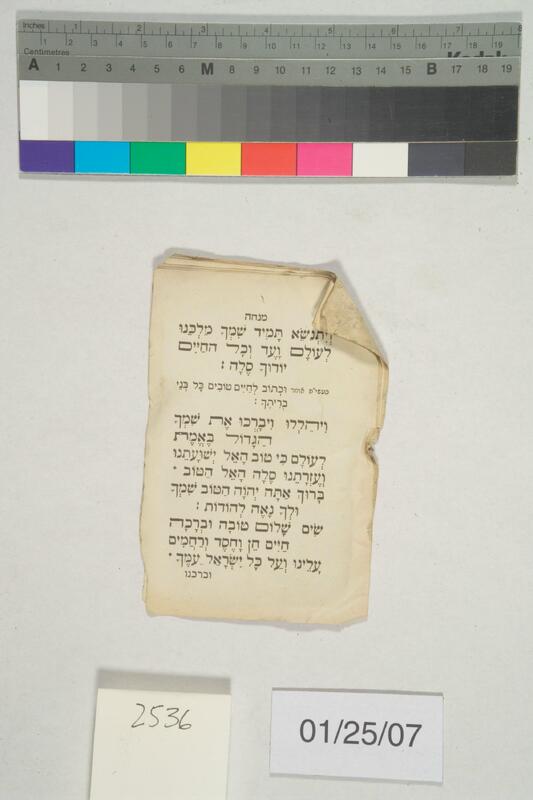 Inches 1 2 3 4 5 6 7 8
Centimetres 1 2 3 4 5 6 7 8 9 10 11 12 13 14 15 16 17 18 19
A 1 2 3 4 5 6 M 8 9 10 11 12 13 14 15 B 17 18 19
מנחה
וְיִתְנַשֵּׂא תָּמִיד שִׁמְךָ מַלְכֵּנוּ
לְעוֹלָם וָעֶד וְכֹל הַחַיִּים
יוֹדוּךָ סֶּלָה :
מעשי״ת אומר וּכְתוֹב לְחַיִּים טוֹבִים כָּל בְּנֵי
בְרִיתֶךָ :
וִיהַלְלוּ וִיבָרְכוּ אֶת שִׁמְךָ
הַגָּדוֹל בֶּאֱמֶת
לְעוֹלָם כִּי טוֹב הָאֵל יְשׁוּעָתֵנוּ
וְעֶזְרָתֵנוּ סֶלָה הָאֵל הַטּוֹב *
בָּרוּךְ אַתָּה יְהֹוָה הַטּוֹב שִׁמְךָ
וּלְךָ נָאֶה לְהוֹדוֹת :
שִׂים שָׁלוֹם טוֹבָה וּבְרָכָה
חַיִּים חֵן וָחֶסֶד וְרַחֲמִים
עָלֵינוּ וְעַל כָּל יִשְׂרָאֵל עַמֶּךָ *
וברכנו
2536
01/25/07